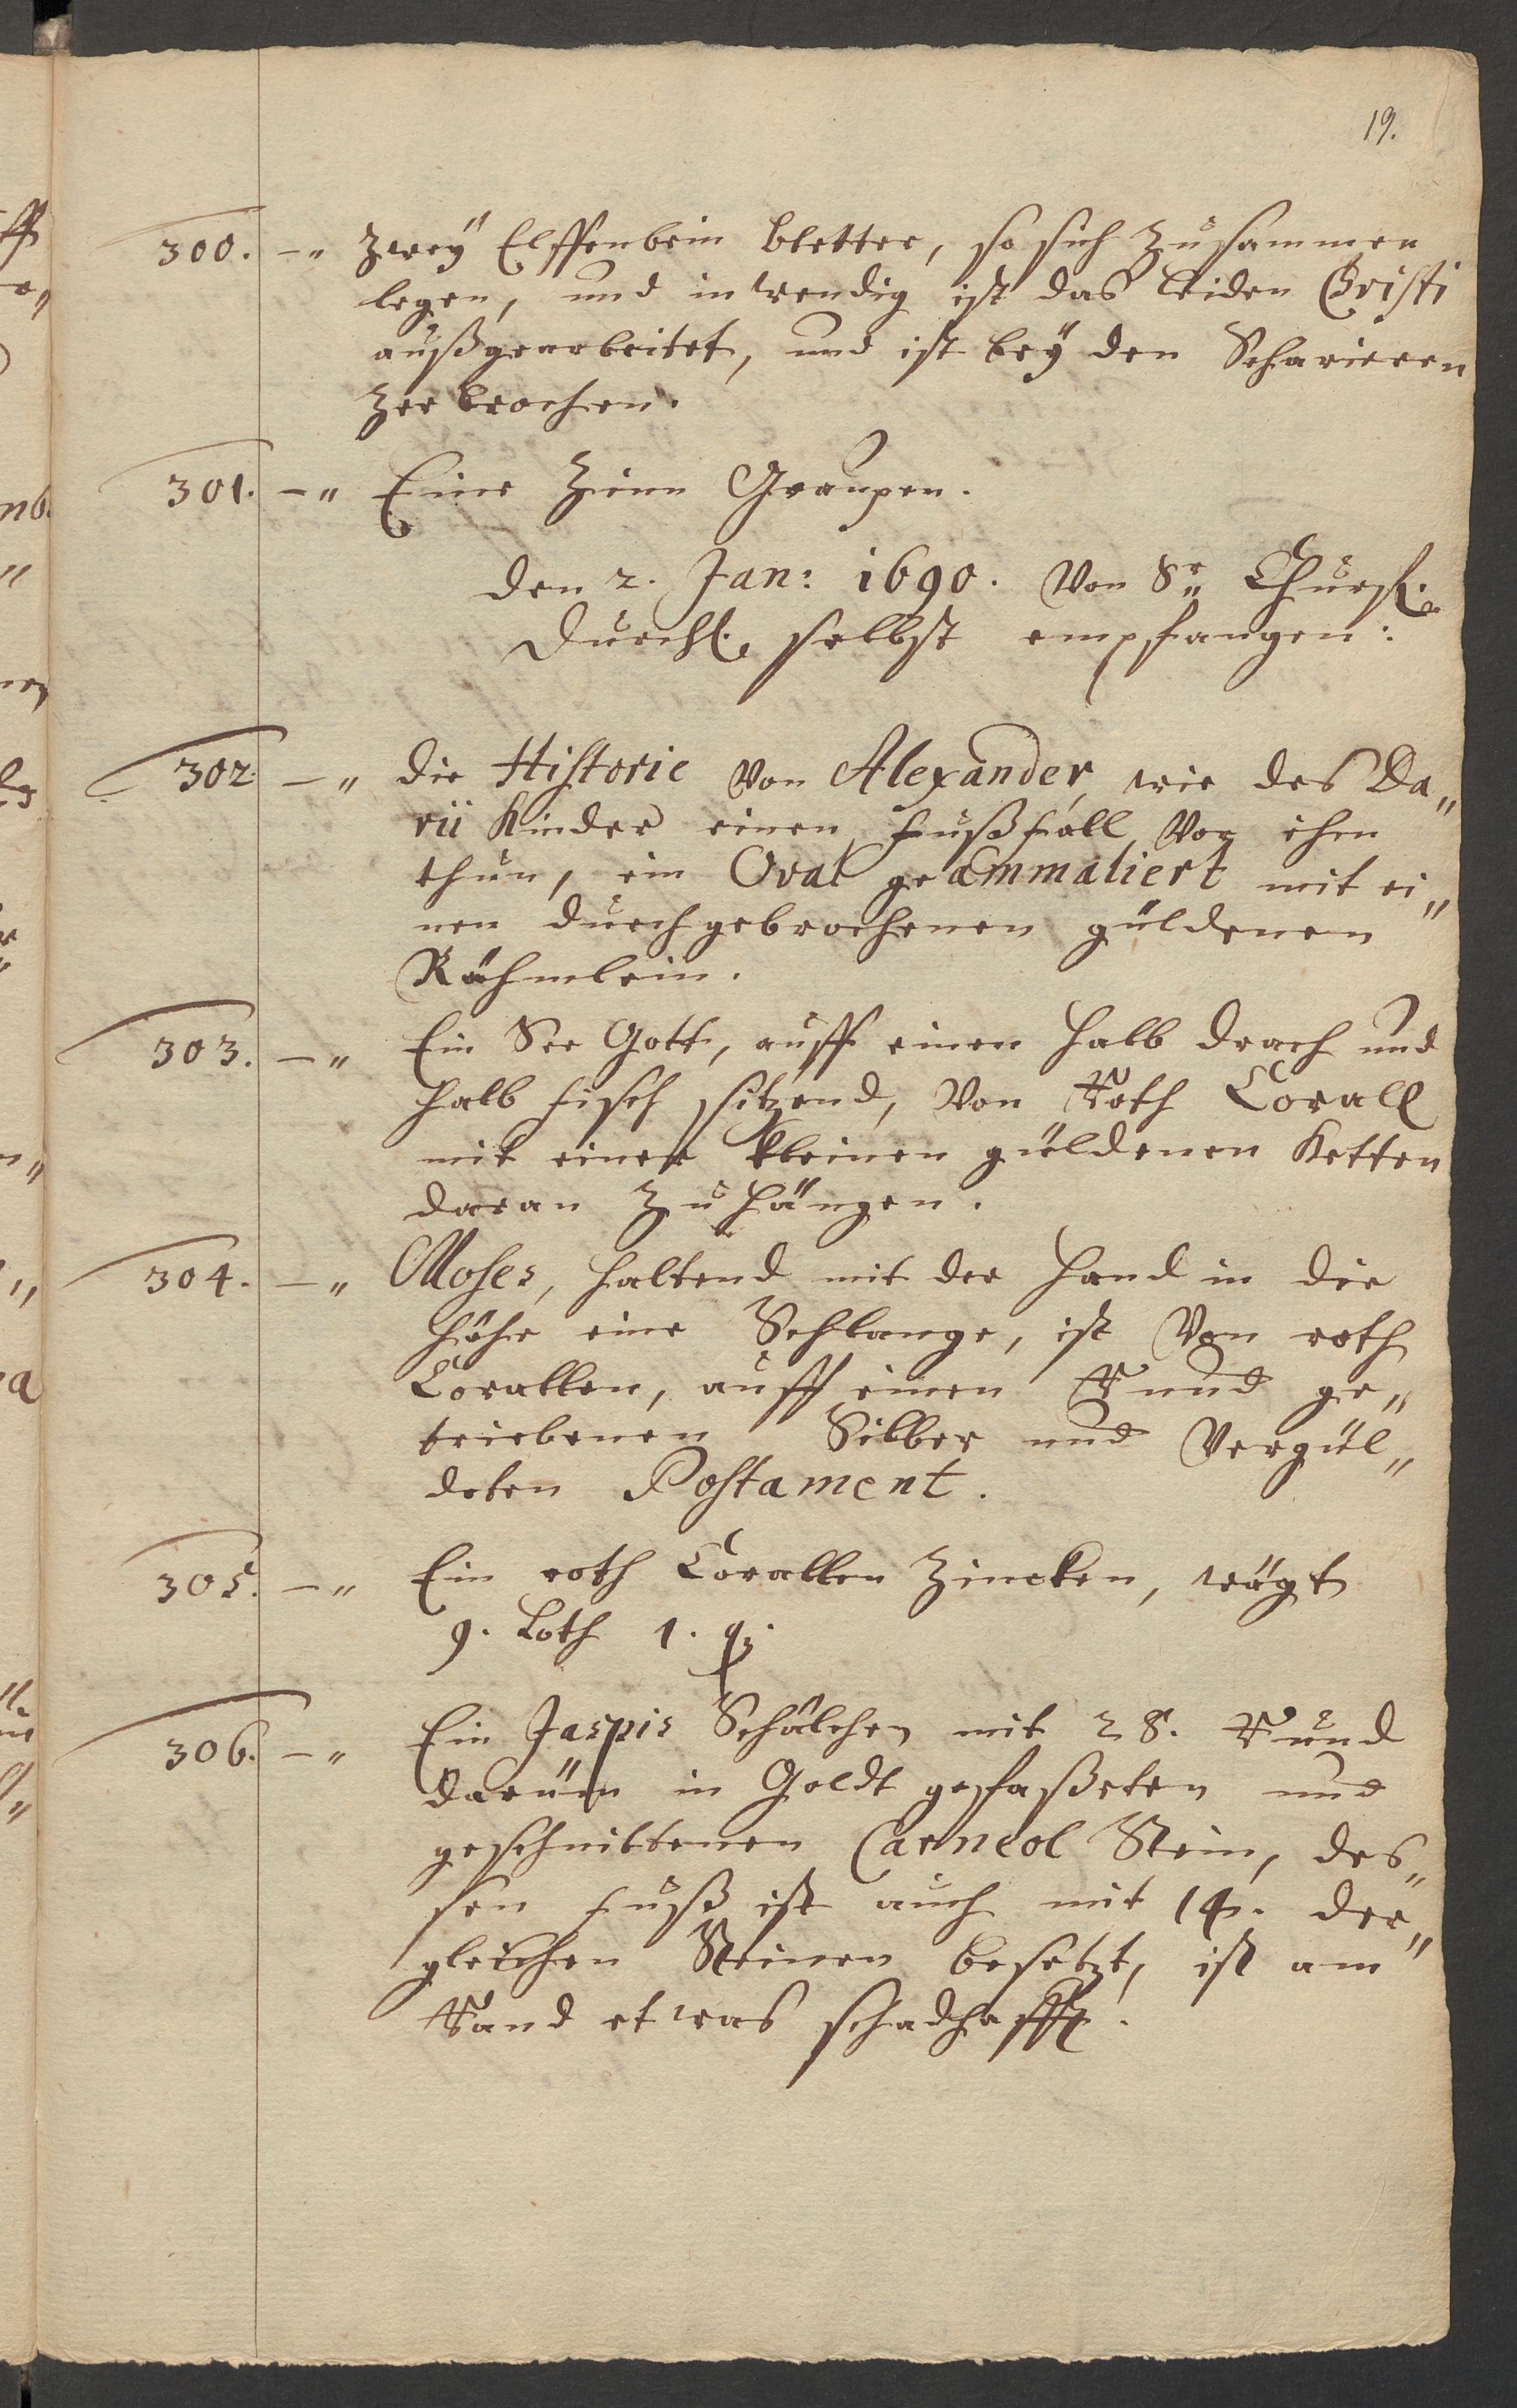 19.
300. -„ Zweÿ Elffenbein bletter, so sich zusammen
legen, und inwendig ist das Leiden Christi
außgearbeitet, und ist beÿ den Scharieren
zerbrochen.
301. -„ Eine Zinn Graupen.
den 2. Jan: 1690. Von Sr. Churfl.
Durchl. selbst empfangen:
302. -„ die Historie von Alexander, wie des Da„
rii Kinder einen fußfall vor ihm
thun, ein Oval geammaliert mit ei„
nen durchgebrochenen güldenen
Rähmlein.
303. -„ Ein See Gott, auff einen halb drach und
halb fisch sitzend, von Roth Corall
mit einer kleinen güldenen Ketten
daran zu hängen.
304. -„ Moses, haltend mit der hand in die
höhe eine Schlange, ist von roth
Corallen, auff einen Rund ge„
triebenen Silber und vergül„
deten Postament.
305. -„ Ein roth Corallen Zincken, wägt
9. Loth 1. q.
306. -„ Ein Jaspis Schälchen mit 28. Rund
darüm in Goldt gefaßeten und
geschnittenen Carneol Stein, des„
sen fuß ist auch mit 14. der„
gleichen Steinen besetzt, ist am
Rand etwas schadhafft.